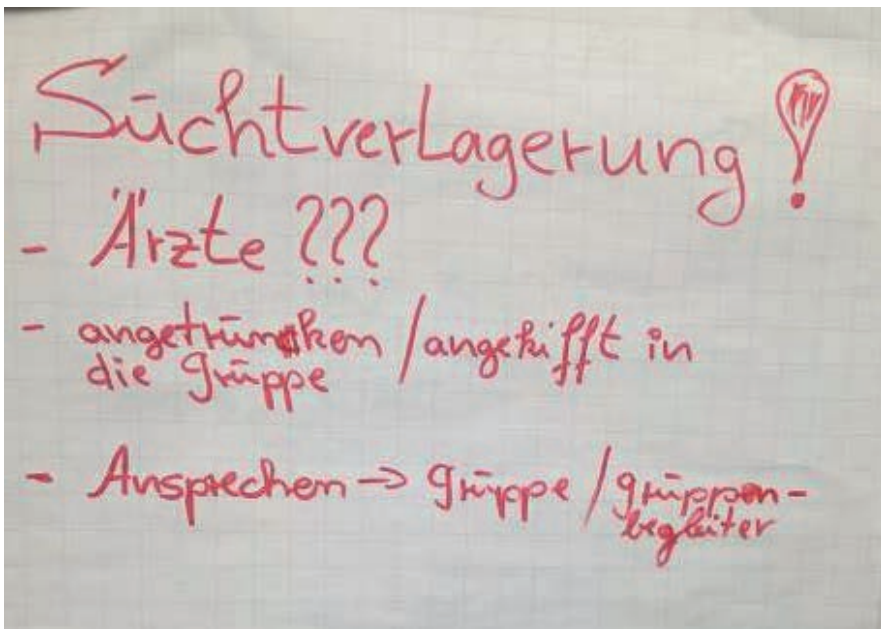 Suchtverlagerung!
- Ärzte ???
- angetrunken / angekifft in
die Gruppe
- Ansprechen → Gruppe / Gruppen-
begleiter